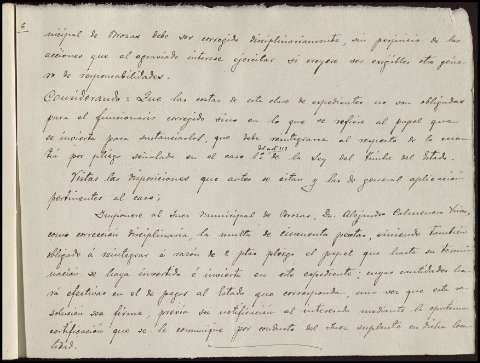 nicipal de Brozas debe ser corregido disciplinariamente, sin perjuicio de las
acciones que al agraviado interese ejercitar si creyese ser exigibles otro géne-
ro de responsabilidades.
Considerando: Que las costas de esta clase de expedientes no son obligadas
para el funcionario corregido sino en lo que se refiere al papel que
se invierte para sustanciarlos, que debe reintegrarse al respecto de la cuan-
tía por pliego señalada en el caso 6º de la Ley del Timbre del Estado.
Vistas las disposiciones que antes se citan y las de general aplicación
pertinentes al caso;
Impónese al Juez Municipal de Brozas, Dn. Alejandro
como corrección disciplinaria, la multa de cincuenta pesetas, viniendo también
obligado a reintegrar a razón de pliego el papel que hasta su termi-
nación se haya invertido é invierta en este expediente; cuyas cantidades ha-
rá efectivas en el de pagos al Estado que corresponda, una vez que esta re-
solución sea firme, previa su notificación al interesado mediante la oportuna
certificación que se le comunique por conducto del Juez suplente en dicha loca-
lidad.